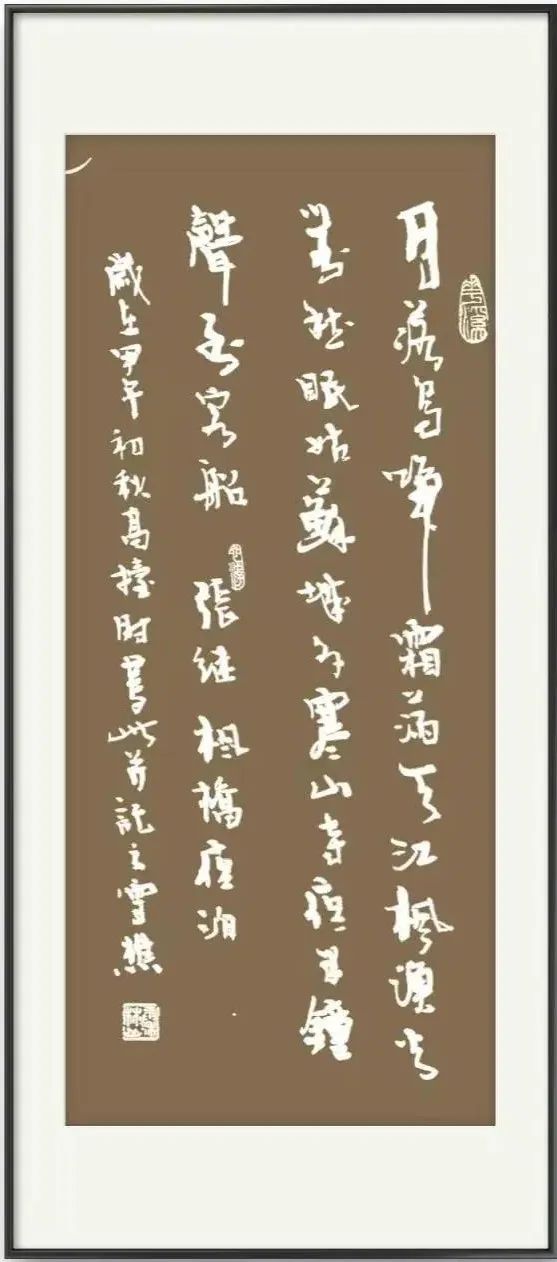 月落烏啼霜滿天江楓漁火
對愁眠姑蘇城外寒山寺夜半鐘
聲到客船 張継楓橋夜泊
歲在甲午初秋高時書此并記之雪樵